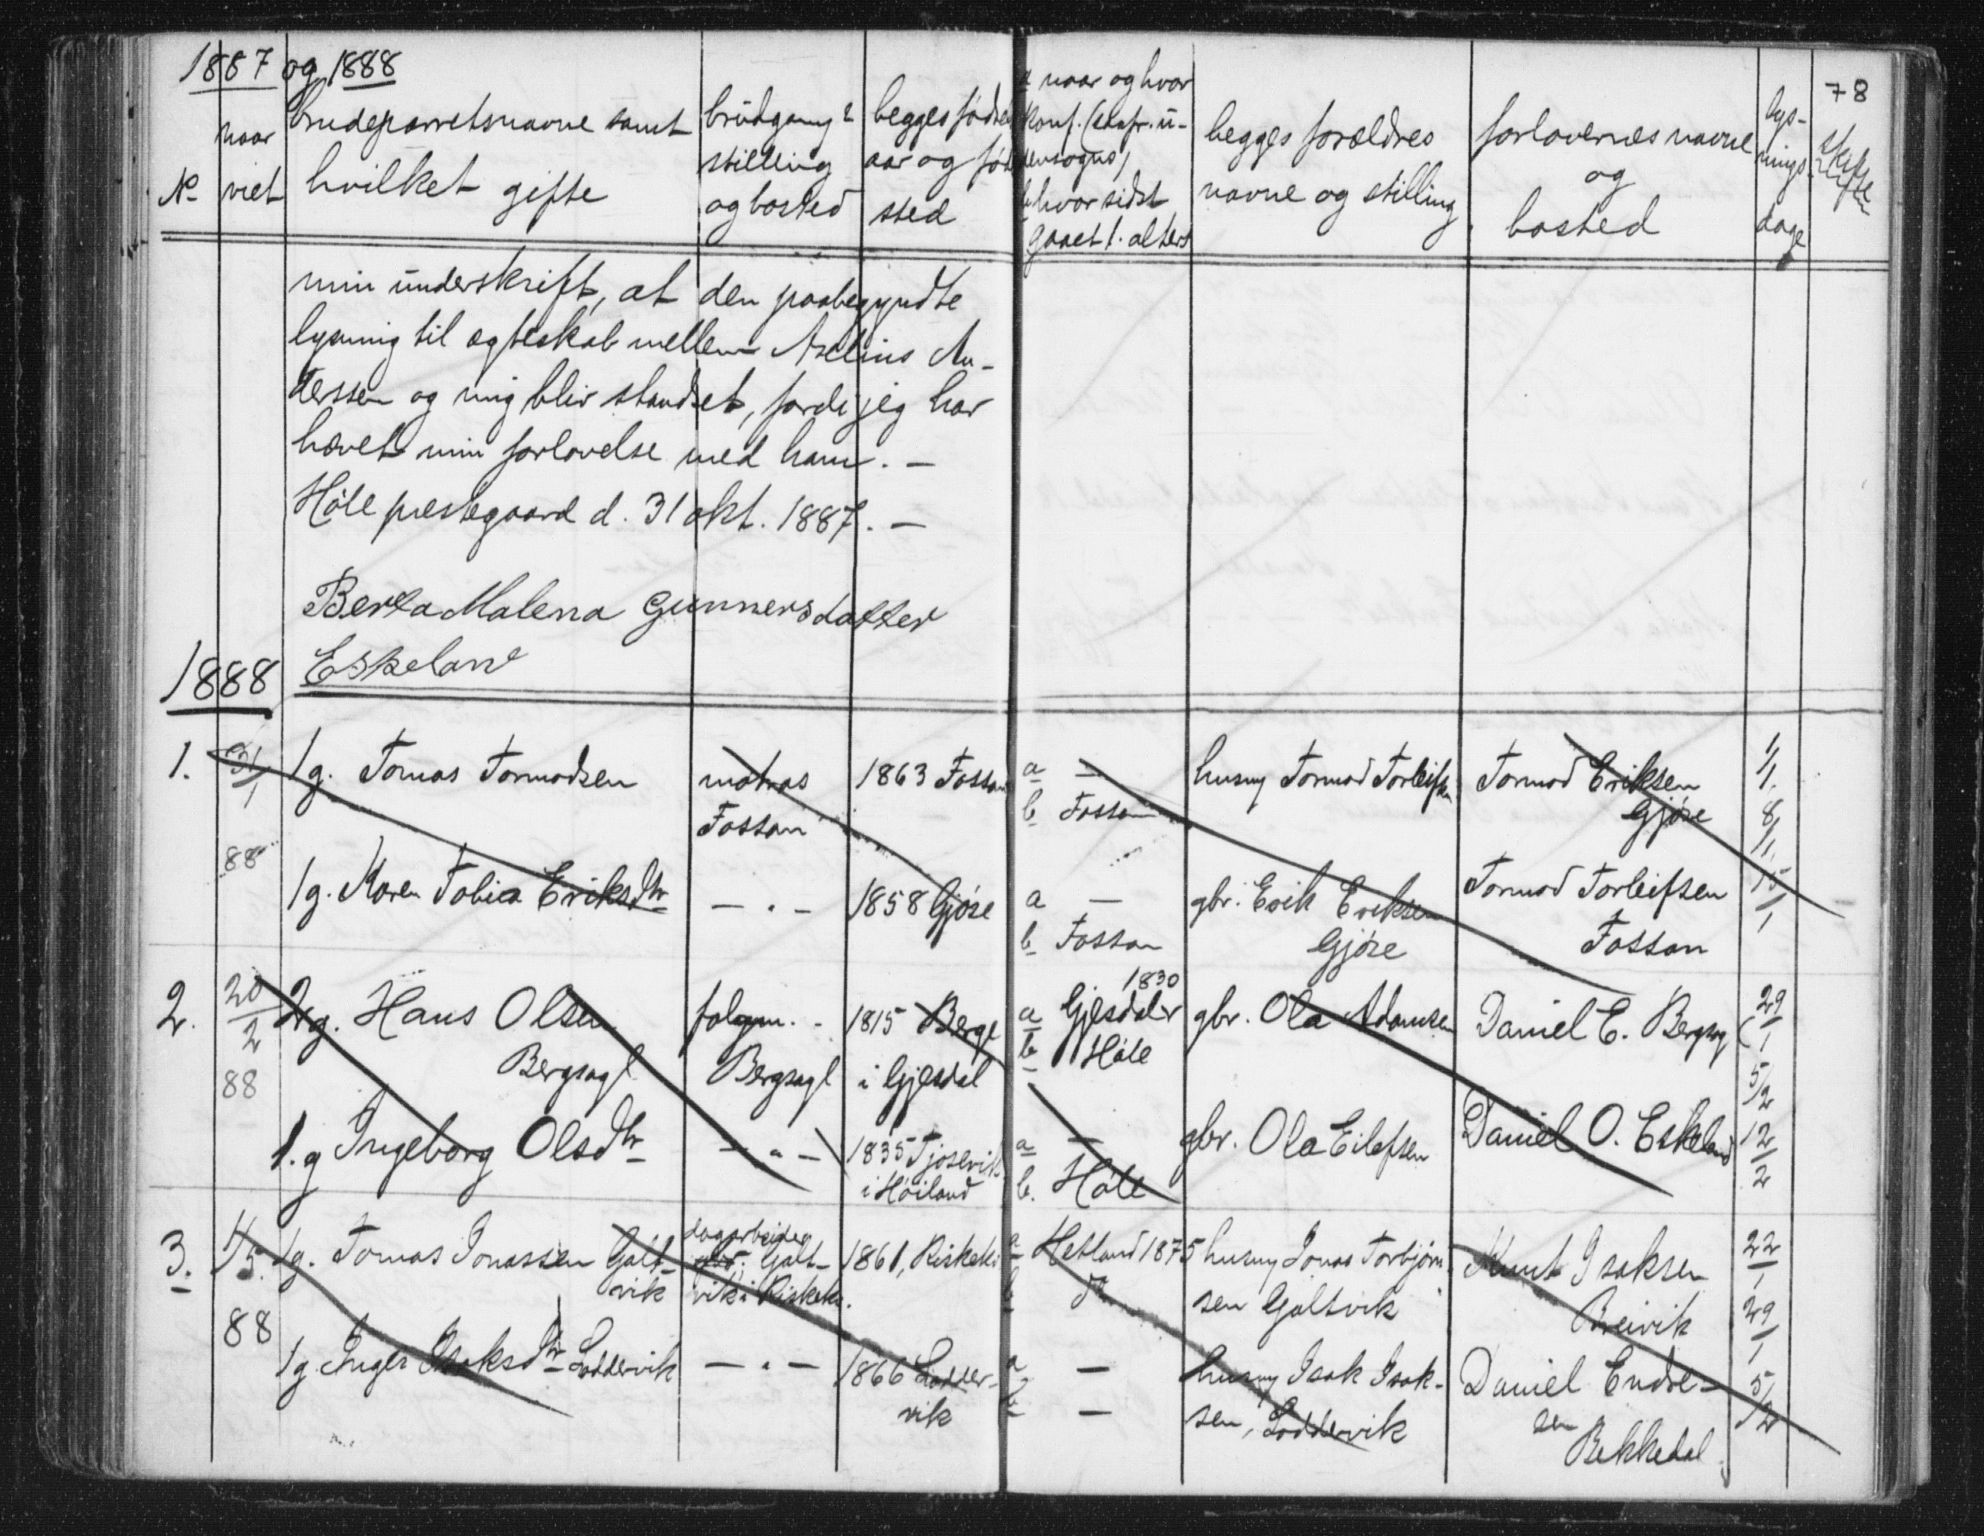 1887 og 1888
78
No
naar
viet
brudeparretsnavne samt
hvilket gifte
brudgoms
stilling
og bosted
begges fødsels
aar og føde
sted
a naar og hvor
konf.
b hvor sidst
gaaet t. alters
begges forældres
navne og stilling
forlovernes navne
og
bosted
lys-
nings
dage
min underskrift, at den paabegyndte
lysning til ægteskab mellem Aselius An-
derssen og mig blir standset, fordi jeg har
hævet min forlovelse med ham. —
Høle præstegaard d. 31 okt. 1887. —
Berta Malena Gunnersdatter
Eskeland
1888
1.
31/1
88
1 g. Tomas Tormodsen
matros
Fossan
1863 Fossan
a —
b Fossan
husm Tormod Torleifsen
Tormod Eriksen
Gjøse
1/1.
8/1.
15/1
1 g. Karen Tobia Eriksdtr
— „ —
1858 Gjøse
a —
b Fossan
gbr. Erik Eriksen
Gjøse
Tormod Torleifsen
Fossan
2.
20/2
88
2 g. Hans Olsen
Bergsagl
folgm.
Bergsagl
1815 Berge
i Gjesdal
a Gjesdal 1830
b Høle
gbr. Ola Adamsen
Daniel E. Bergsag
29/1
5/2
12/2
1. g Ingeborg Olsdtr
— „ —
1835 Tjøsevik
i Høiland
a —
b. Høle
gbr. Ola Eilefsen
Daniel O. Eskeland
3.
1/5.
88
1 g. Tomas Jonassen Galt-
vik
dagarbeider
gbr. Galt-
vik i Riskeki.
1861, Riskeki
a Hetland 1875
b do
husm Jonas Torbjørn-
sen Galtvik
Knut Isaksen
Breivik
22/1
29/1
5/2
1 g. Inger Isaksdtr Loddervik
— „ —
1866 Lodder-
vik
a —
b —
husm Isak Isak-
sen, Loddervik
Daniel Endre-
sen
Bekkedal